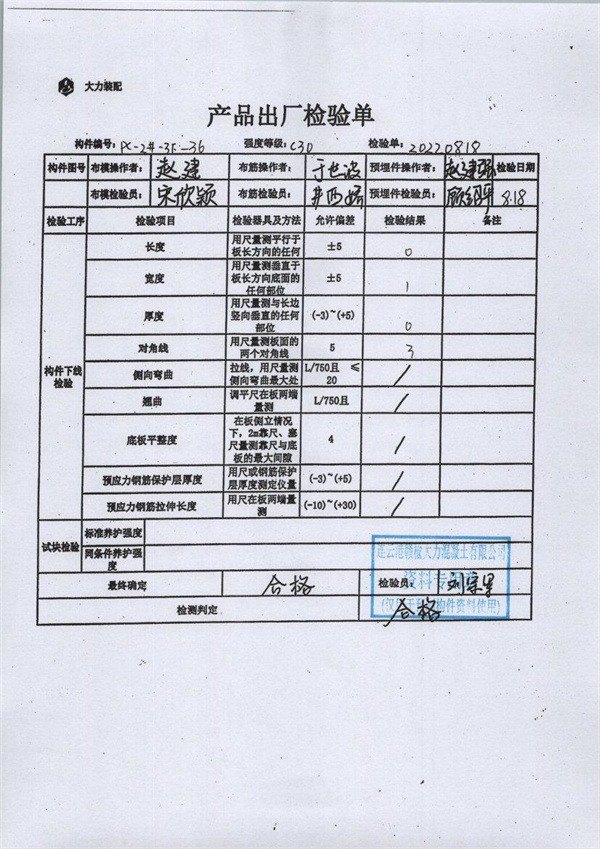 大力装配
产品出厂检验单
构件编号: PC-2#-3F-36 强度等级: C30 检验单: 20220818
构件图号 布模操作者: 赵建 布筋操作者: 于世波 预埋件操作者: 赵建强 检验日期
布模检验员: 宋欣颖 布筋检验员: 预埋件检验员: 8.18
检验工序 检验项目 检验器具及方法 允许偏差 检验结果 备注
构件下线检验
长度 用尺量测平行于板长方向的任何 ±5 0
宽度 用尺量测垂直于板长方向底面的任何部位 ±5 1
厚度 用尺量测与长边竖向垂直的任何部位 (-3)~(+5) 0
对角线 用尺量测板面的两个对角线 5 3
侧向弯曲 拉线，用尺量测侧向弯曲最大处 L/750且 ≤20 /
翘曲 调平尺在板两端量测 L/750且 /
底板平整度 在板侧立情况下，2m靠尺、塞尺量测靠尺与底板的最大间隙 4 /
预应力钢筋保护层厚度 用尺或钢筋保护层厚度测定仪量 (-3)~(+5) /
预应力钢筋拉伸长度 用尺在板两端量测 (-10)~(+30) /
试块检验 标准养护强度
同条件养护强度
连云港赣榆大力混凝土有限公司
资料专用章
最终确定 合格 检验员:
构件资料使用)
检测判定 合格